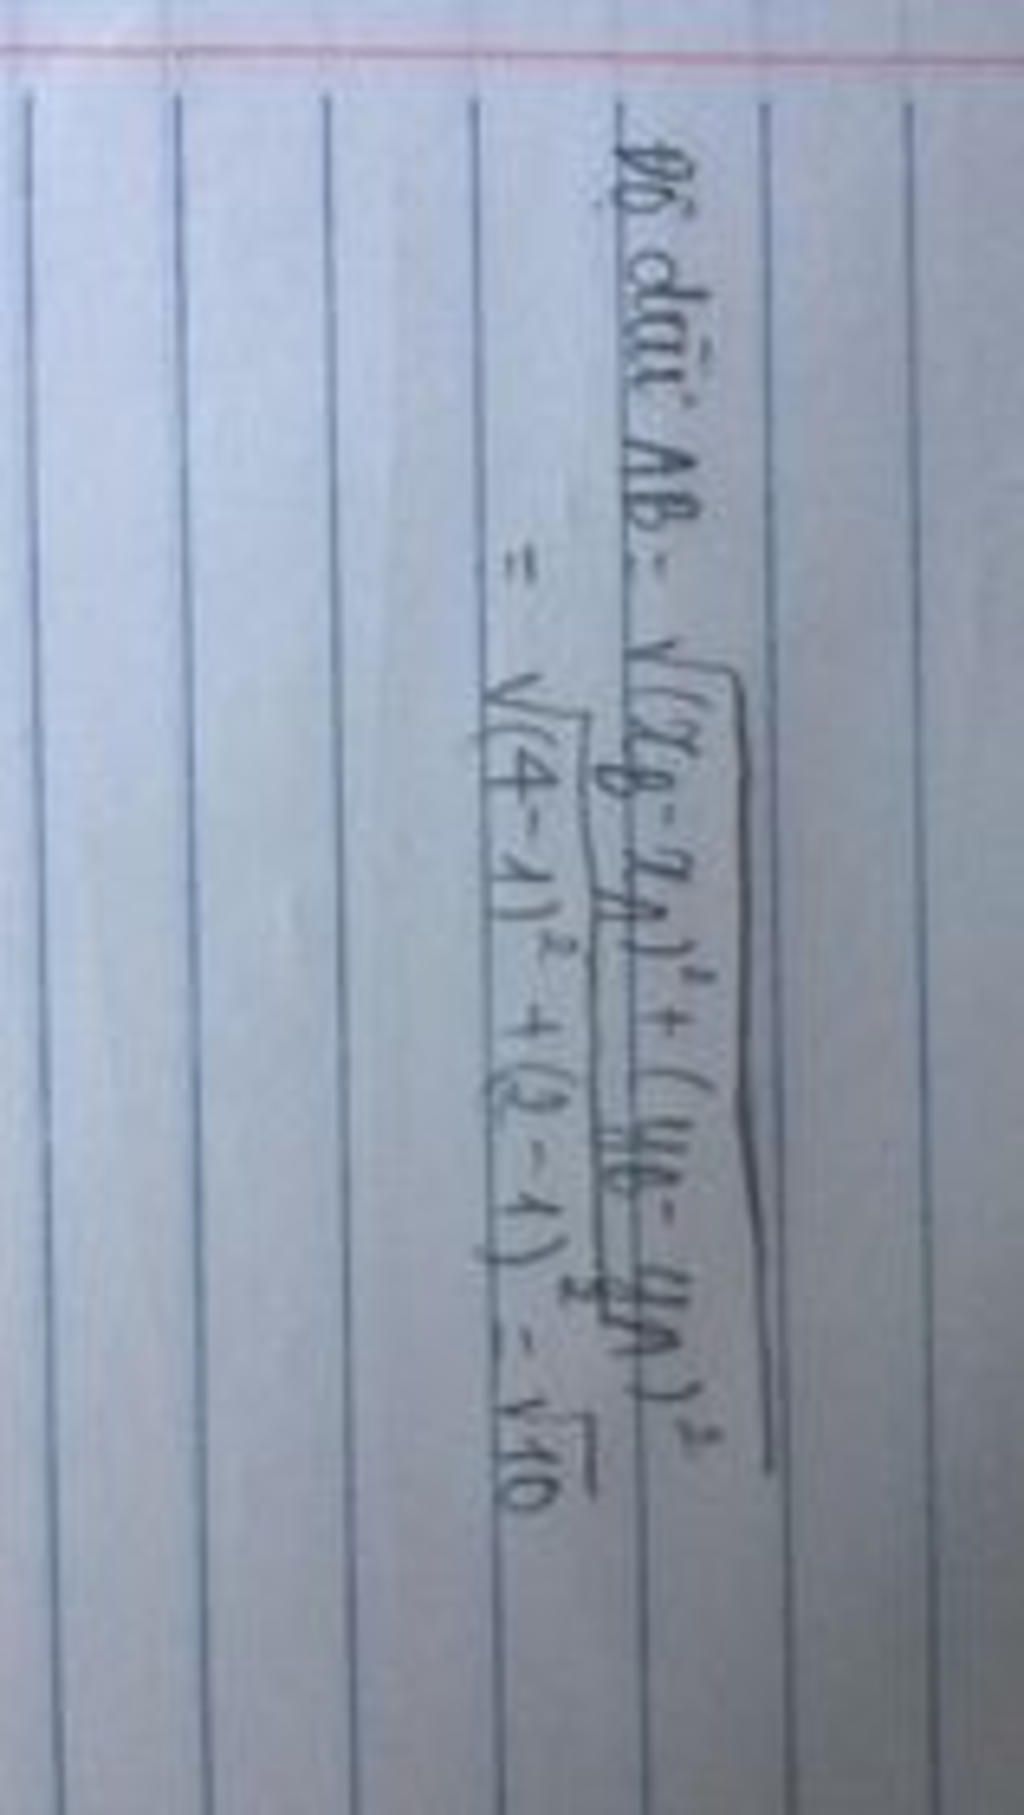 Độ dài AB = √((x_B - x_A)² + (y_B - y_A)²)
= √((4-1)² + (2-1)²) = √10